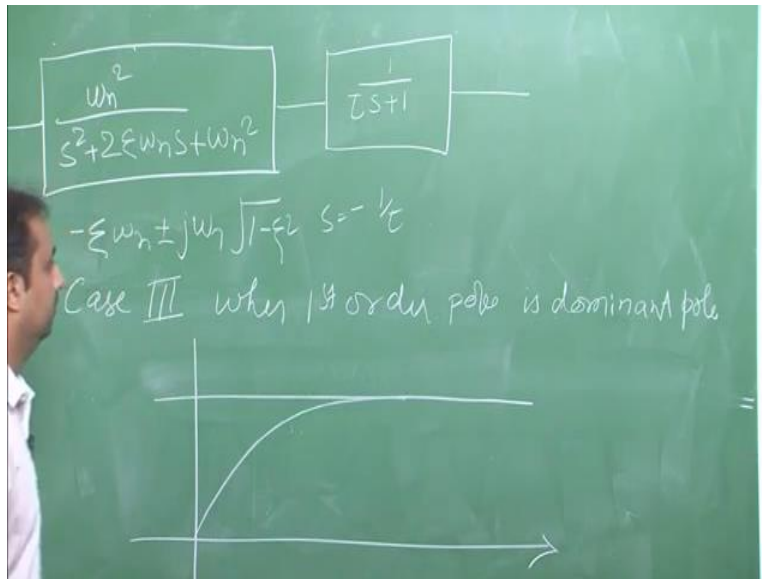 ωn²/(s²+2ξωns+ωn²)
1/(τs+1)
-ξωn±jωn√(1-ξ²) s=-1/τ
Case III when 1st order pole is dominant pole
=